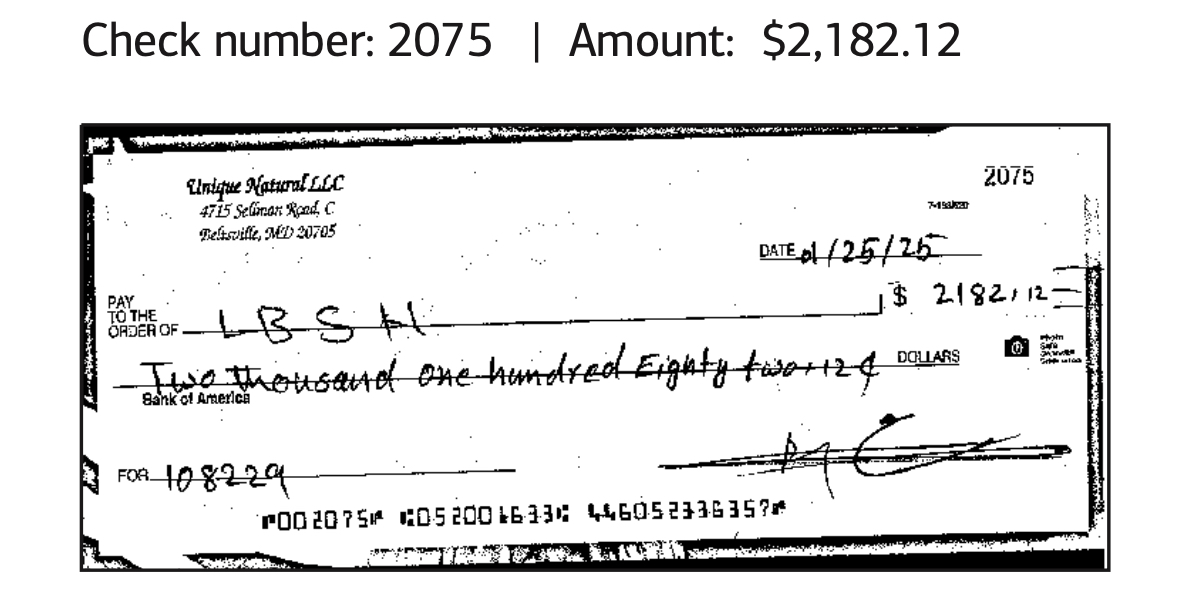 Check number: 2075 | Amount: $2,182.12
Unique Natural LLC
4715 Sellman Road, C
Beltsville, MD 20705
2075
DATE 01/25/25
PAY
TO THE
ORDER OF LBSH
$ 2182.12
Two thousand one hundred Eighty two + 12 ¢ DOLLARS
Photo
Safe
Bank of America
FOR 108229
⑈002075⑈ ⑆052001633⑆ 446052336357⑈